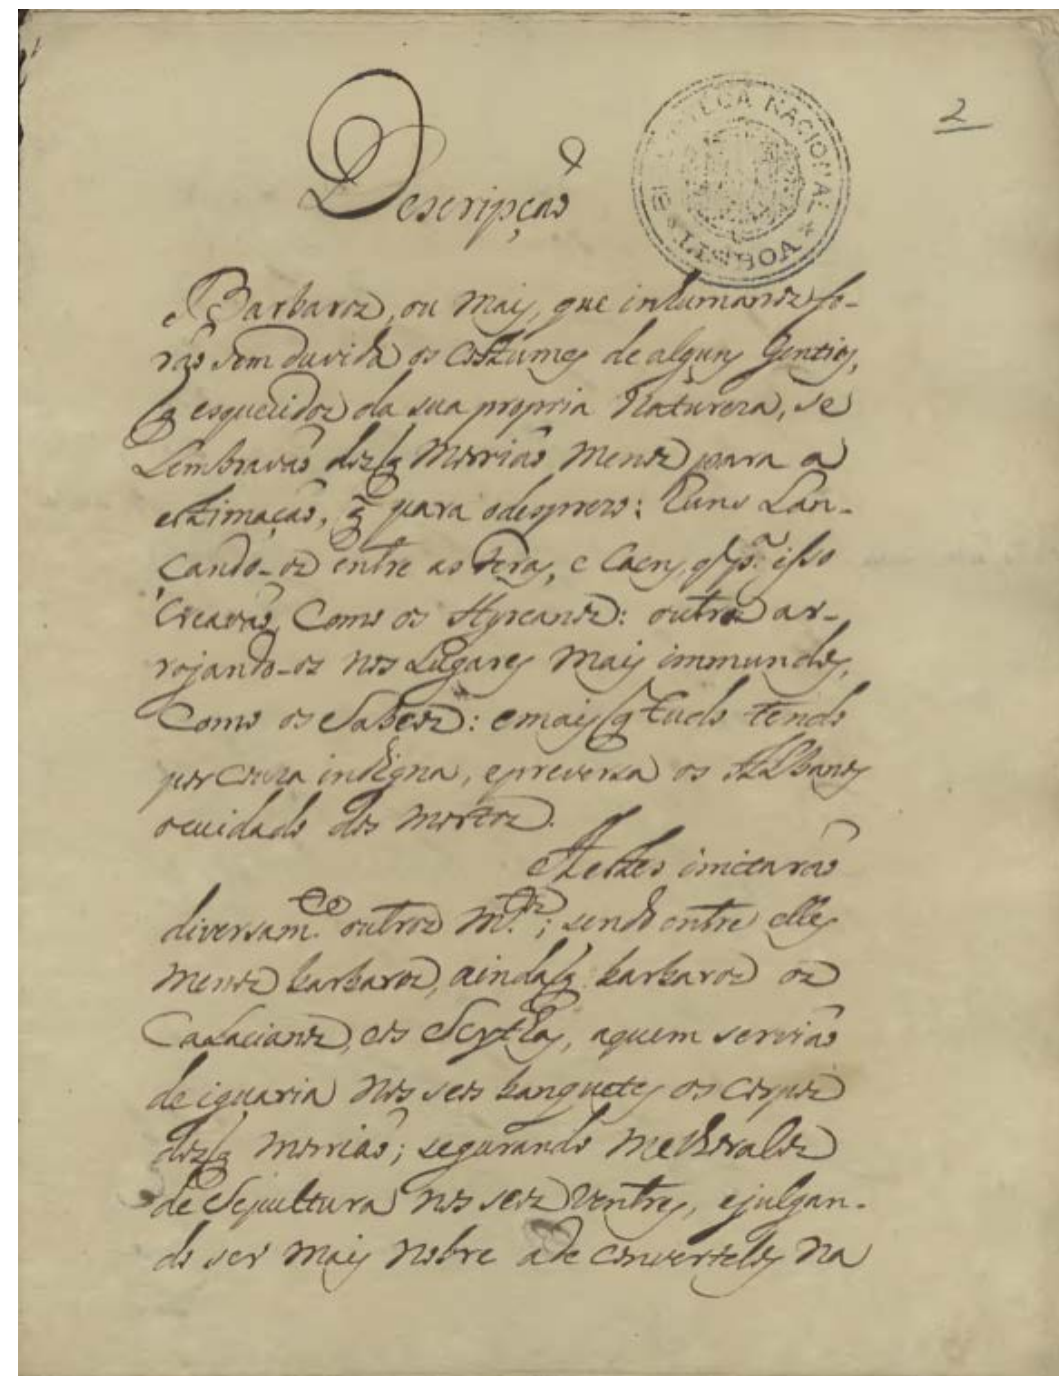 2
BIBLIOTECA NACIONAL
* LISBOA *
Descripçaõ
Barbaros, ou mais, que inhumanos fo-
raõ sem duvida os costumes de alguns Gentios,
q̃ esquecidos da sua propria Natureza, se
Lembravaõ dos q̃ morriaõ menos para a
estimaçaõ, q̃ para odesprezo: huns Lan-
çando-os entre as feras, e Caens, q̃ pª. isso
Creavaõ, Como os Hyrcanos: outros ar-
rojando-os nos Lugares mais immundos,
Como os Sabeos: emais q̃ tudo tendo
por couza indigna, epreversa os Albanos
ocuidado dos mortos.
Aestes imitaraõ
diversamte. outros mtos.; sendo entre elles
menos barbaros, ainda q̃ barbaros os
Calacianos, eos Scythas, aquem serviaõ
de iguaria nos seos banquetes os corpos
dos q̃ morriaõ; segurando melhoralos
de Sepultura nos seos ventres, ejulgan-
do ser mais nobre ade convertelos na